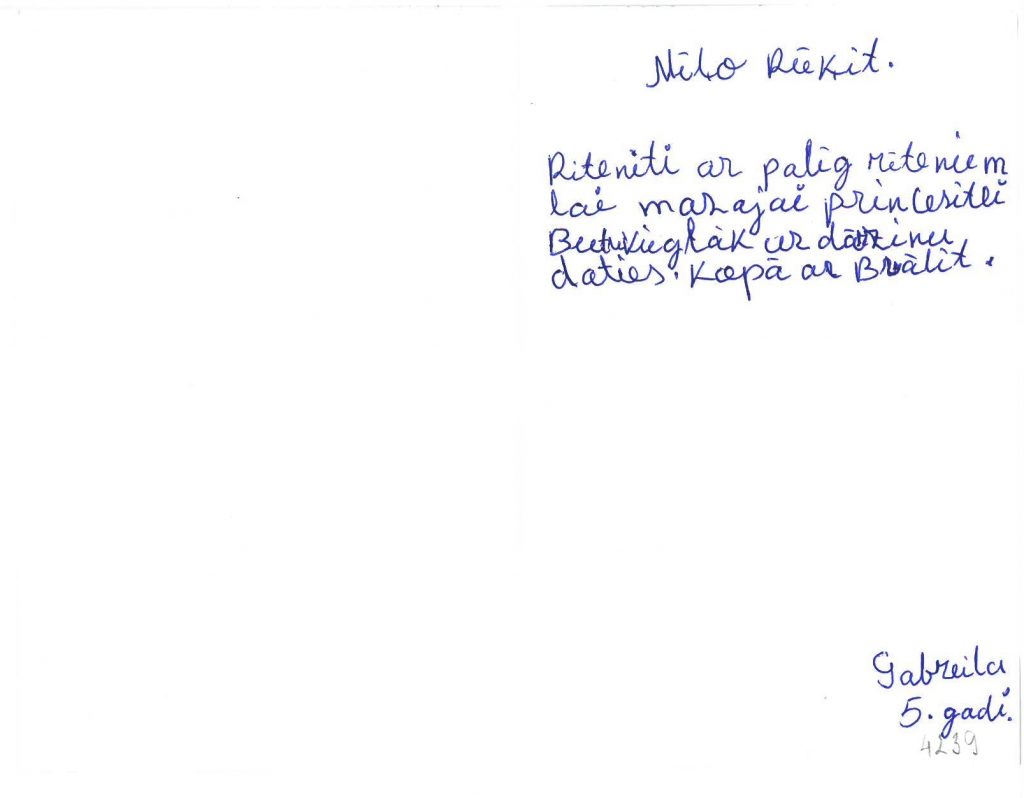 Mīļo Rūķit.
Riteniti ar palīg riteniem
lai mazajai princesitei
Butu vieglāk uz dārzinu
daties. Kopā ar Brālit.
Gabreila
5. gadi.
4239